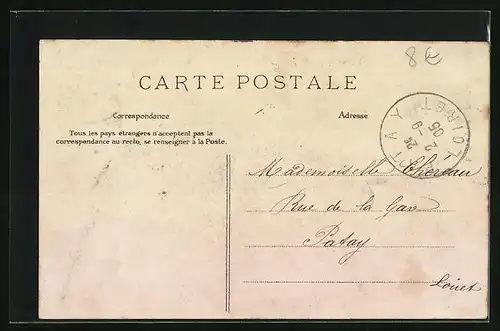 8€
CARTE POSTALE
Correspondance
Adresse
Tous les pays étrangers n'acceptent pas la
correspondance au recto, se renseigner à la Poste.
PATAY LOIRET
Mademoiselle Thereau
Rue de la Gare
Patay
Loiret